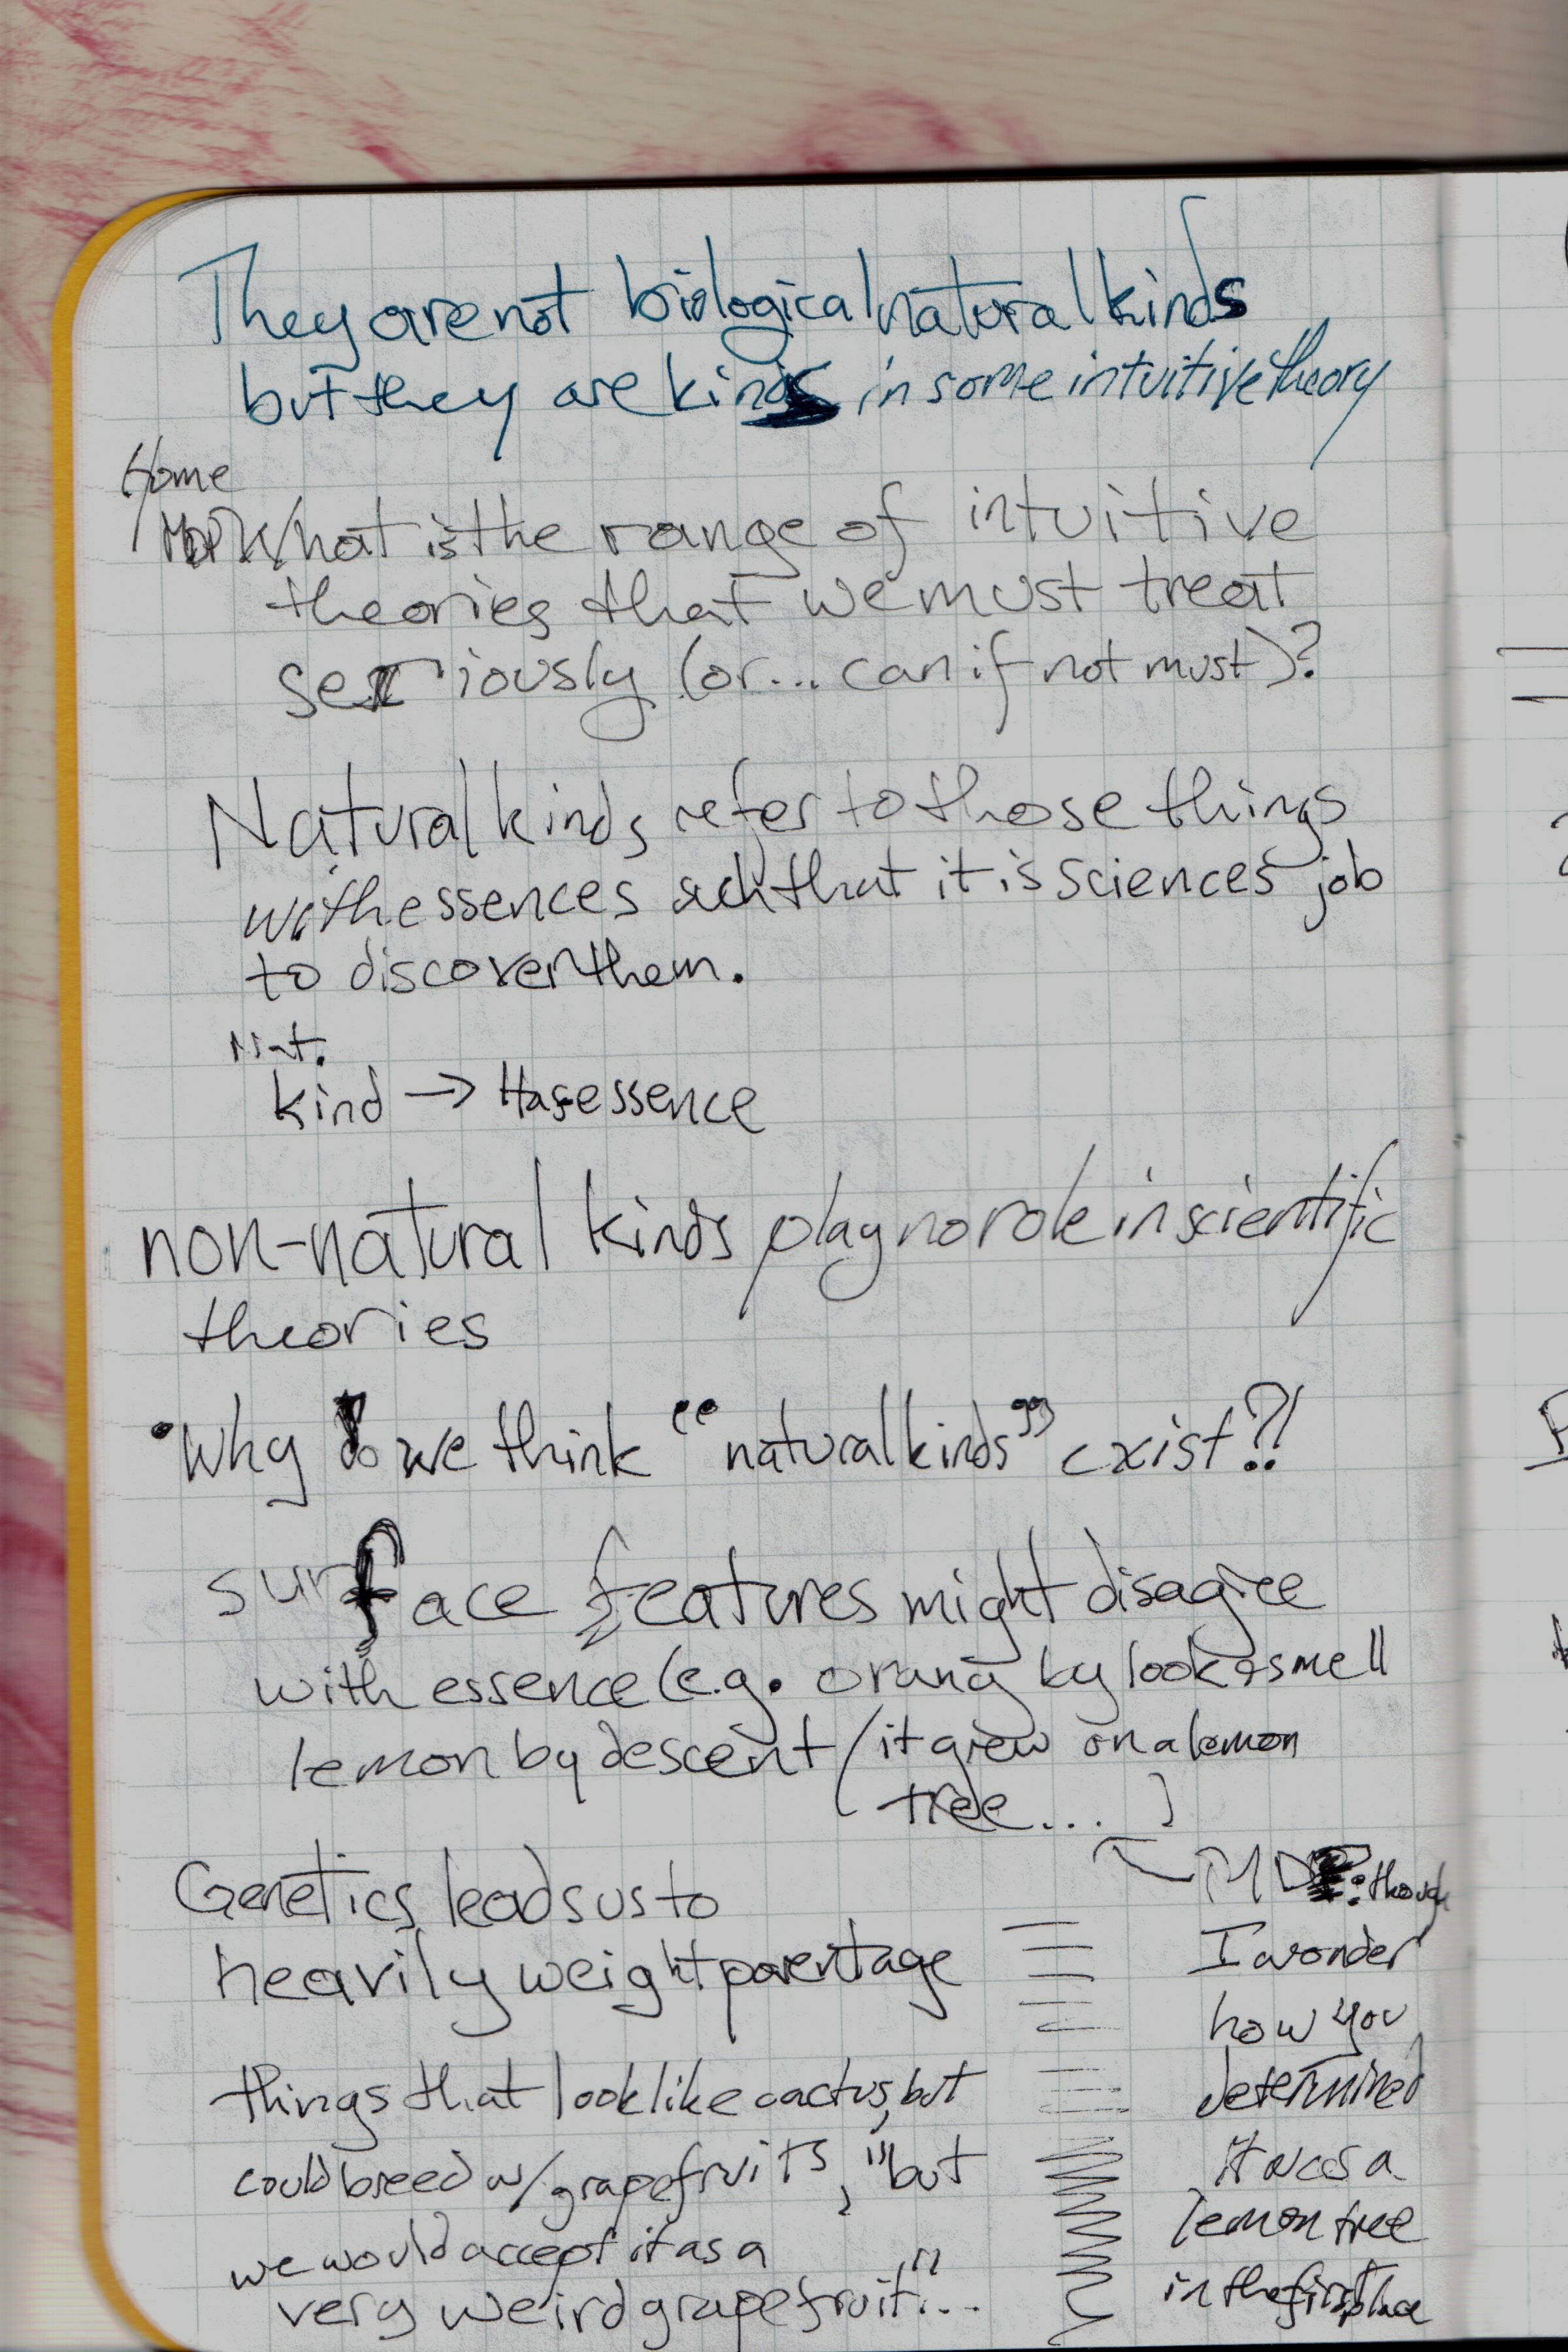 They are not biological natural kinds
but they are kinds in some intuitive theory
Home
What is the range of intuitive
theories that we must treat
seriously (or... can if not must)?
Natural kinds refer to those things
with essences such that it is sciences job
to discover them.
Nat.
kind → Has essence
non-natural kinds play no role in scientific
theories
• Why do we think "natural kinds" exist?!
surface features might disagree
with essence (e.g. orang by look & smell
lemon by descent (it grew on a lemon
tree... )
Genetics leads us to
heavily weight parentage
things that look like cactus, but
could breed w/ grapefruits, "but
we would accept it as a
very weird grapefruit"...
though
I wonder
how you
determined
it was a
lemon tree
in the first place